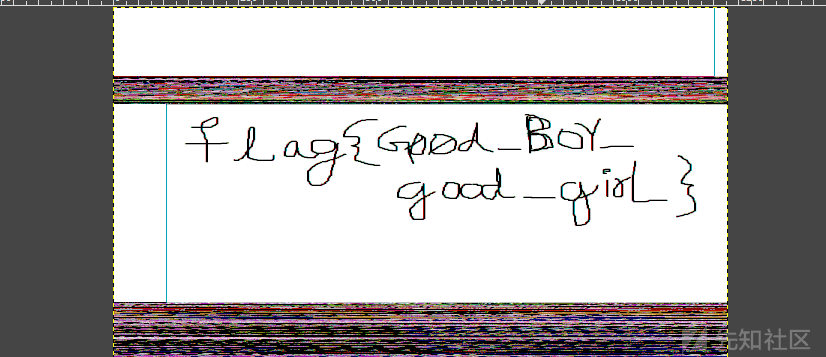 flag{Good_BOY_
good_girl_}
先知社区